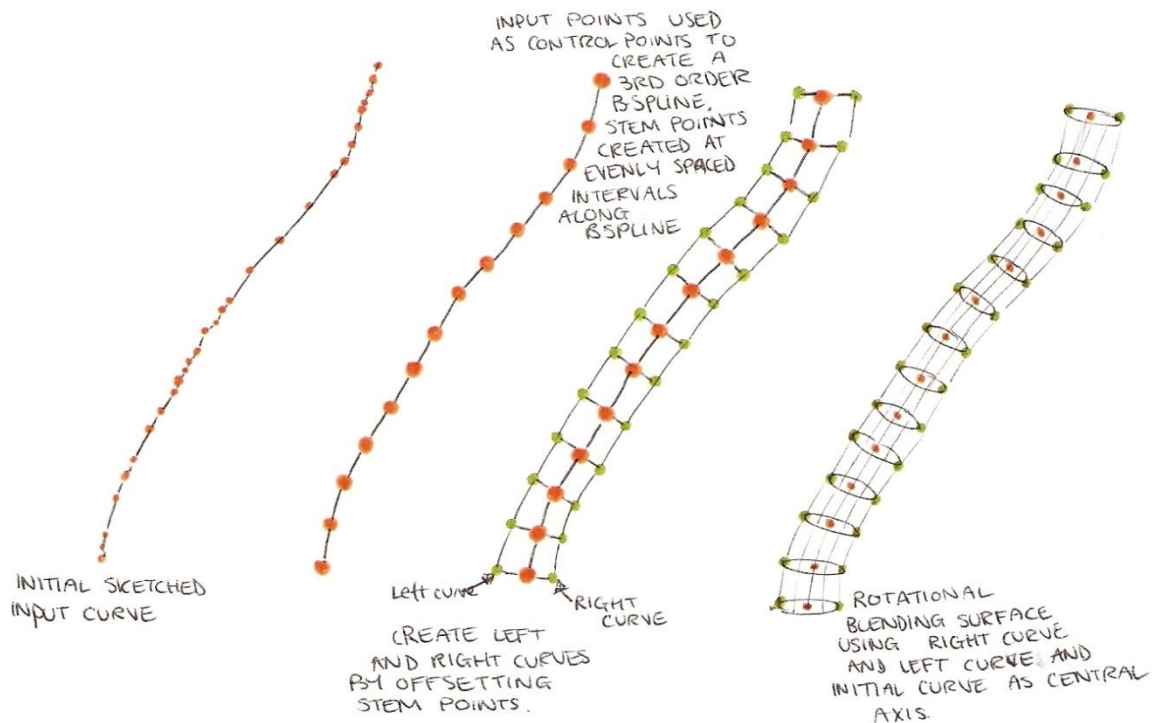 INITIAL SKETCHED
INPUT CURVE
INPUT POINTS USED
AS CONTROL POINTS TO
CREATE A
3RD ORDER
BSPLINE.
STEM POINTS
CREATED AT
EVENLY SPACED
INTERVALS
ALONG
BSPLINE
Left curve
RIGHT
CURVE
CREATE LEFT
AND RIGHT CURVES
BY OFFSETTING
STEM POINTS.
ROTATIONAL
BLENDING SURFACE
USING RIGHT CURVE
AND LEFT CURVE AND
INITIAL CURVE AS CENTRAL
AXIS.